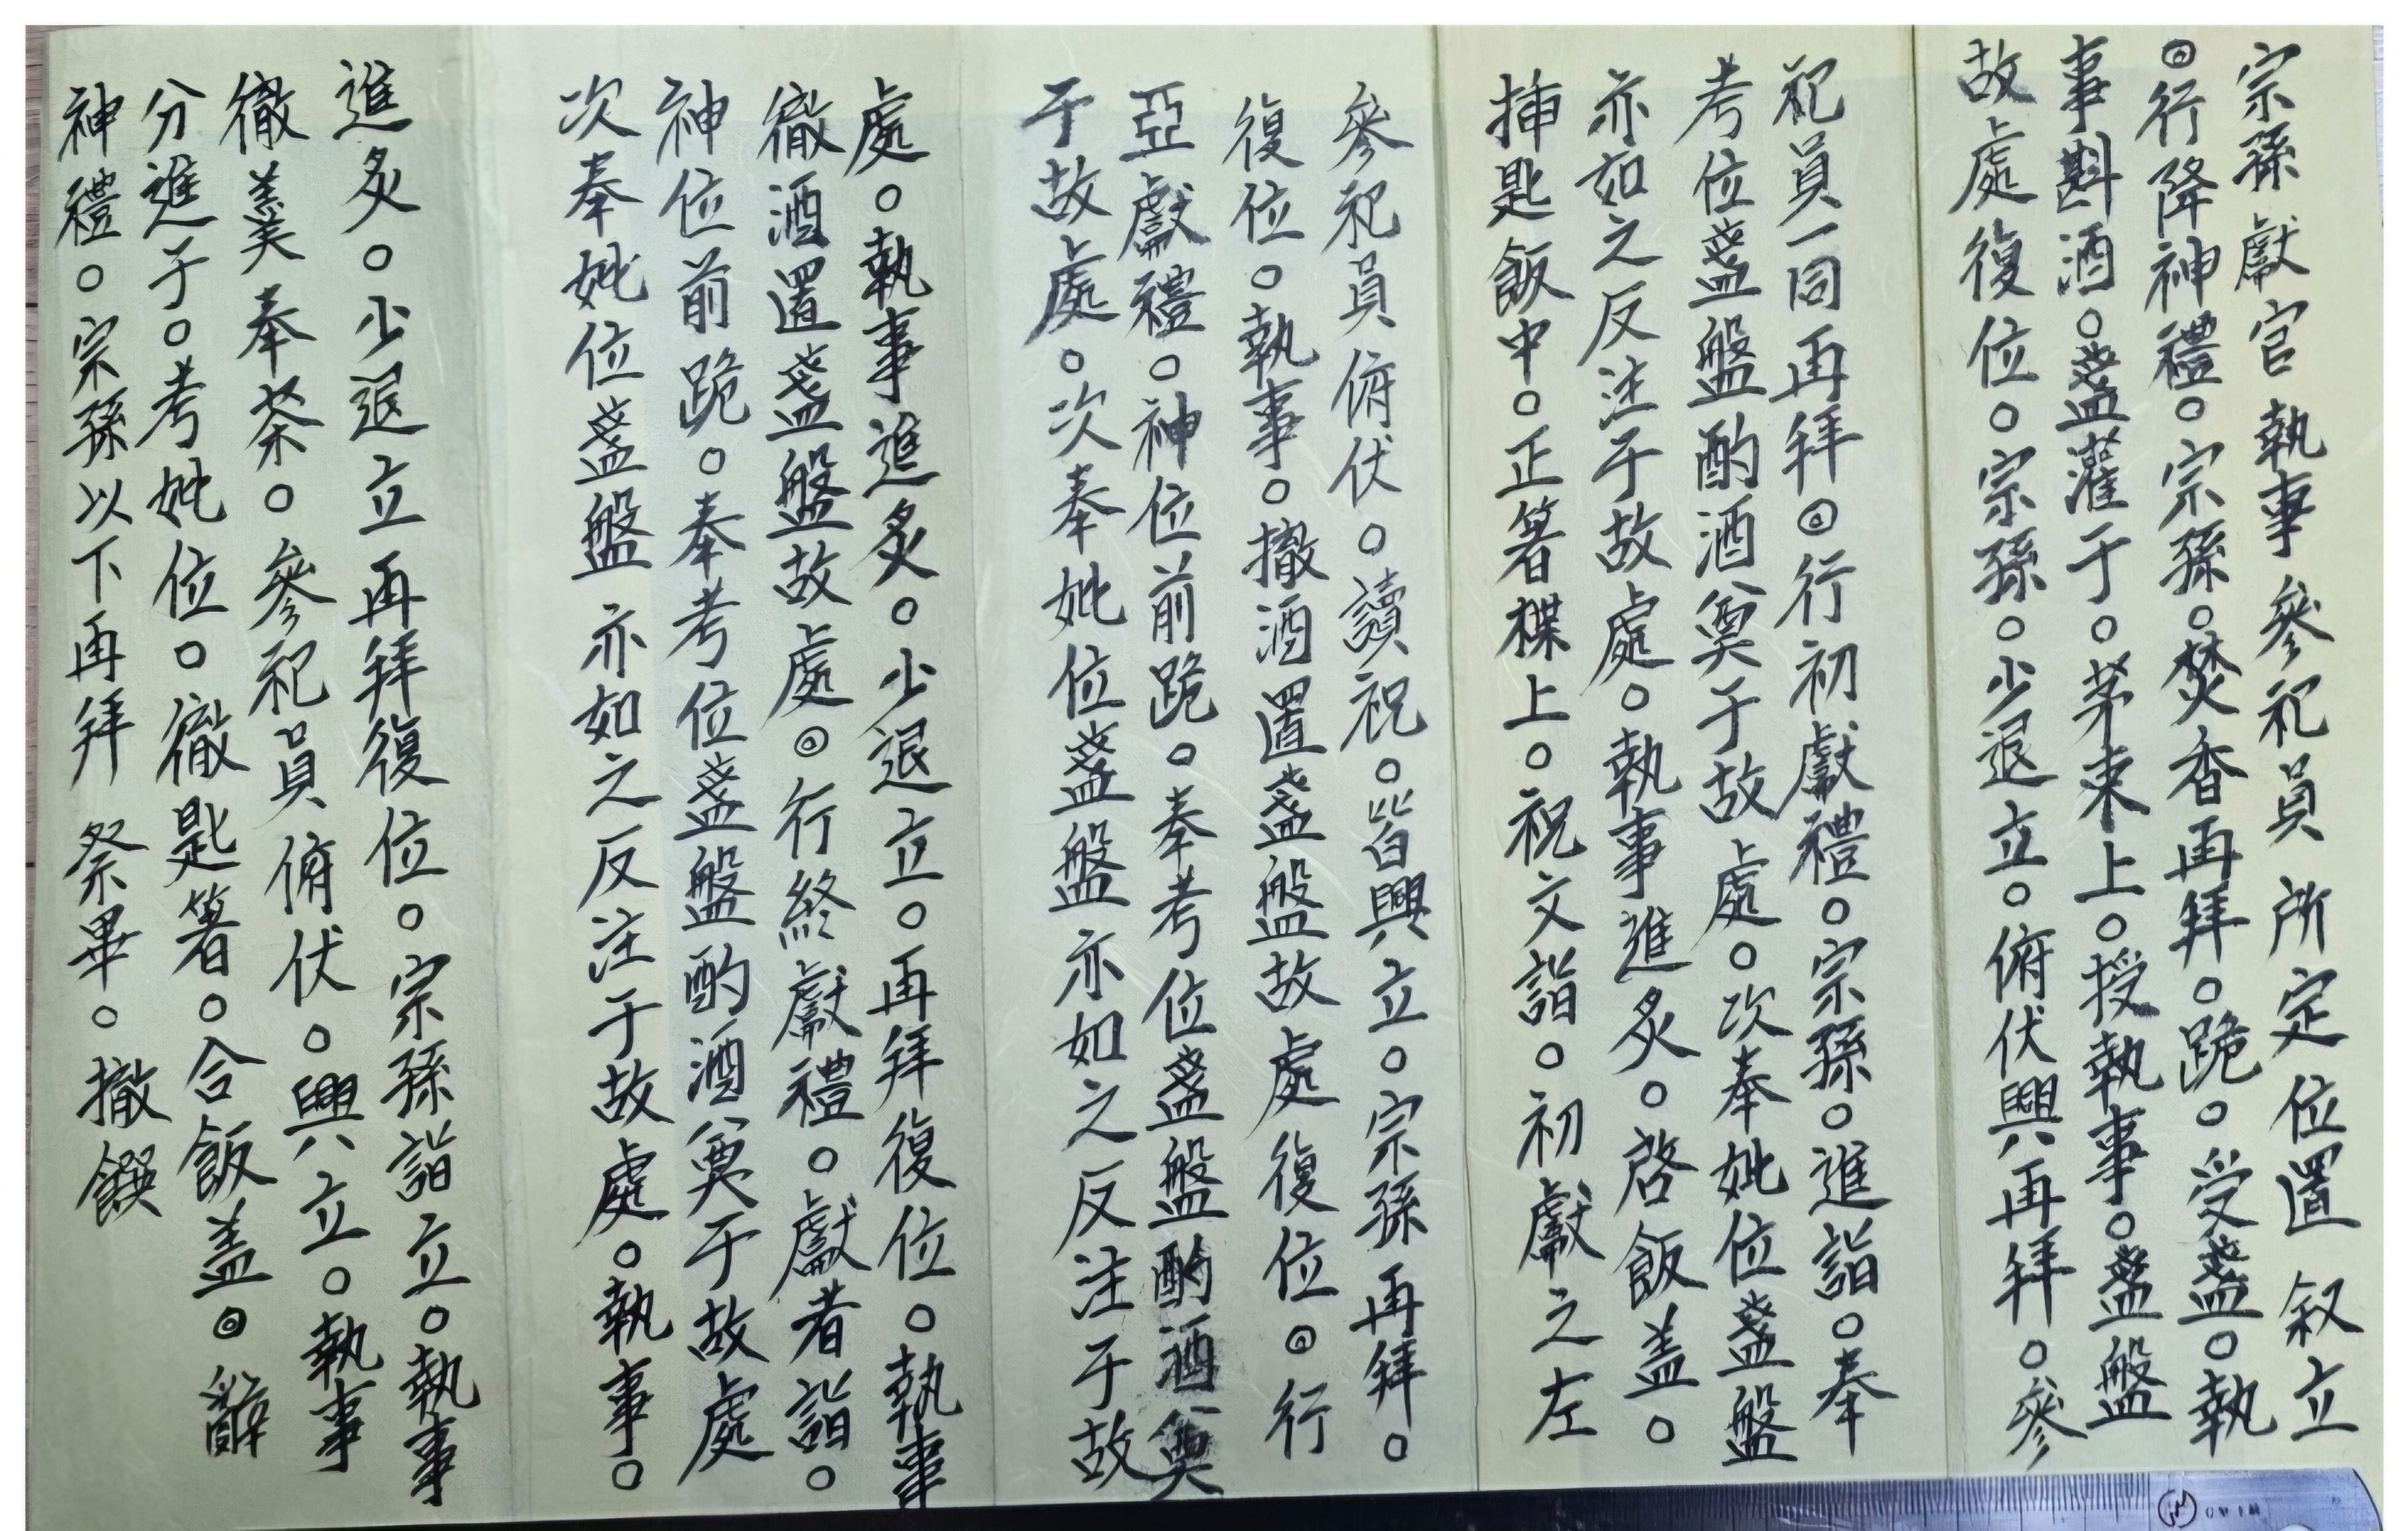 宗孫獻官執事參祀員所定位置叙立
◎行降神禮○宗孫○焚香再拜○跪○受盞○執
事斟酒○盞灌于○茅束上○授執事○盞盤
故處復位○宗孫○少退立○俯伏興再拜○參
祀員一同再拜◎行初獻禮○宗孫○進詣○奉
考位盞盤酌酒奠于故處○次奉妣位盞盤
亦如之反注于故處○執事進炙○啓飯盖○
揷匙飯中○正箸楪上○祝文詣○初獻之左
參祀員俯伏○讀祝○皆興立○宗孫再拜○
復位○執事○撤酒置盞盤故處復位◎行
亞獻禮○神位前跪○奉考位盞盤酌酒奠
于故處○次奉妣位盞盤亦如之反注于故
處○執事進炙○少退立○再拜復位○執事
徹酒置盞盤故處◎行終獻禮○獻者詣○
神位前跪○奉考位盞盤酌酒奠于故處
次奉妣位盞盤亦如之反注于故處○執事○
進炙○少退立再拜復位○宗孫詣立○執事
徹羹奉茶○參祀員俯伏○興立○執事
分進于○考妣位○徹匙箸○合飯盖◎辭
神禮○宗孫以下再拜祭畢○撤饌